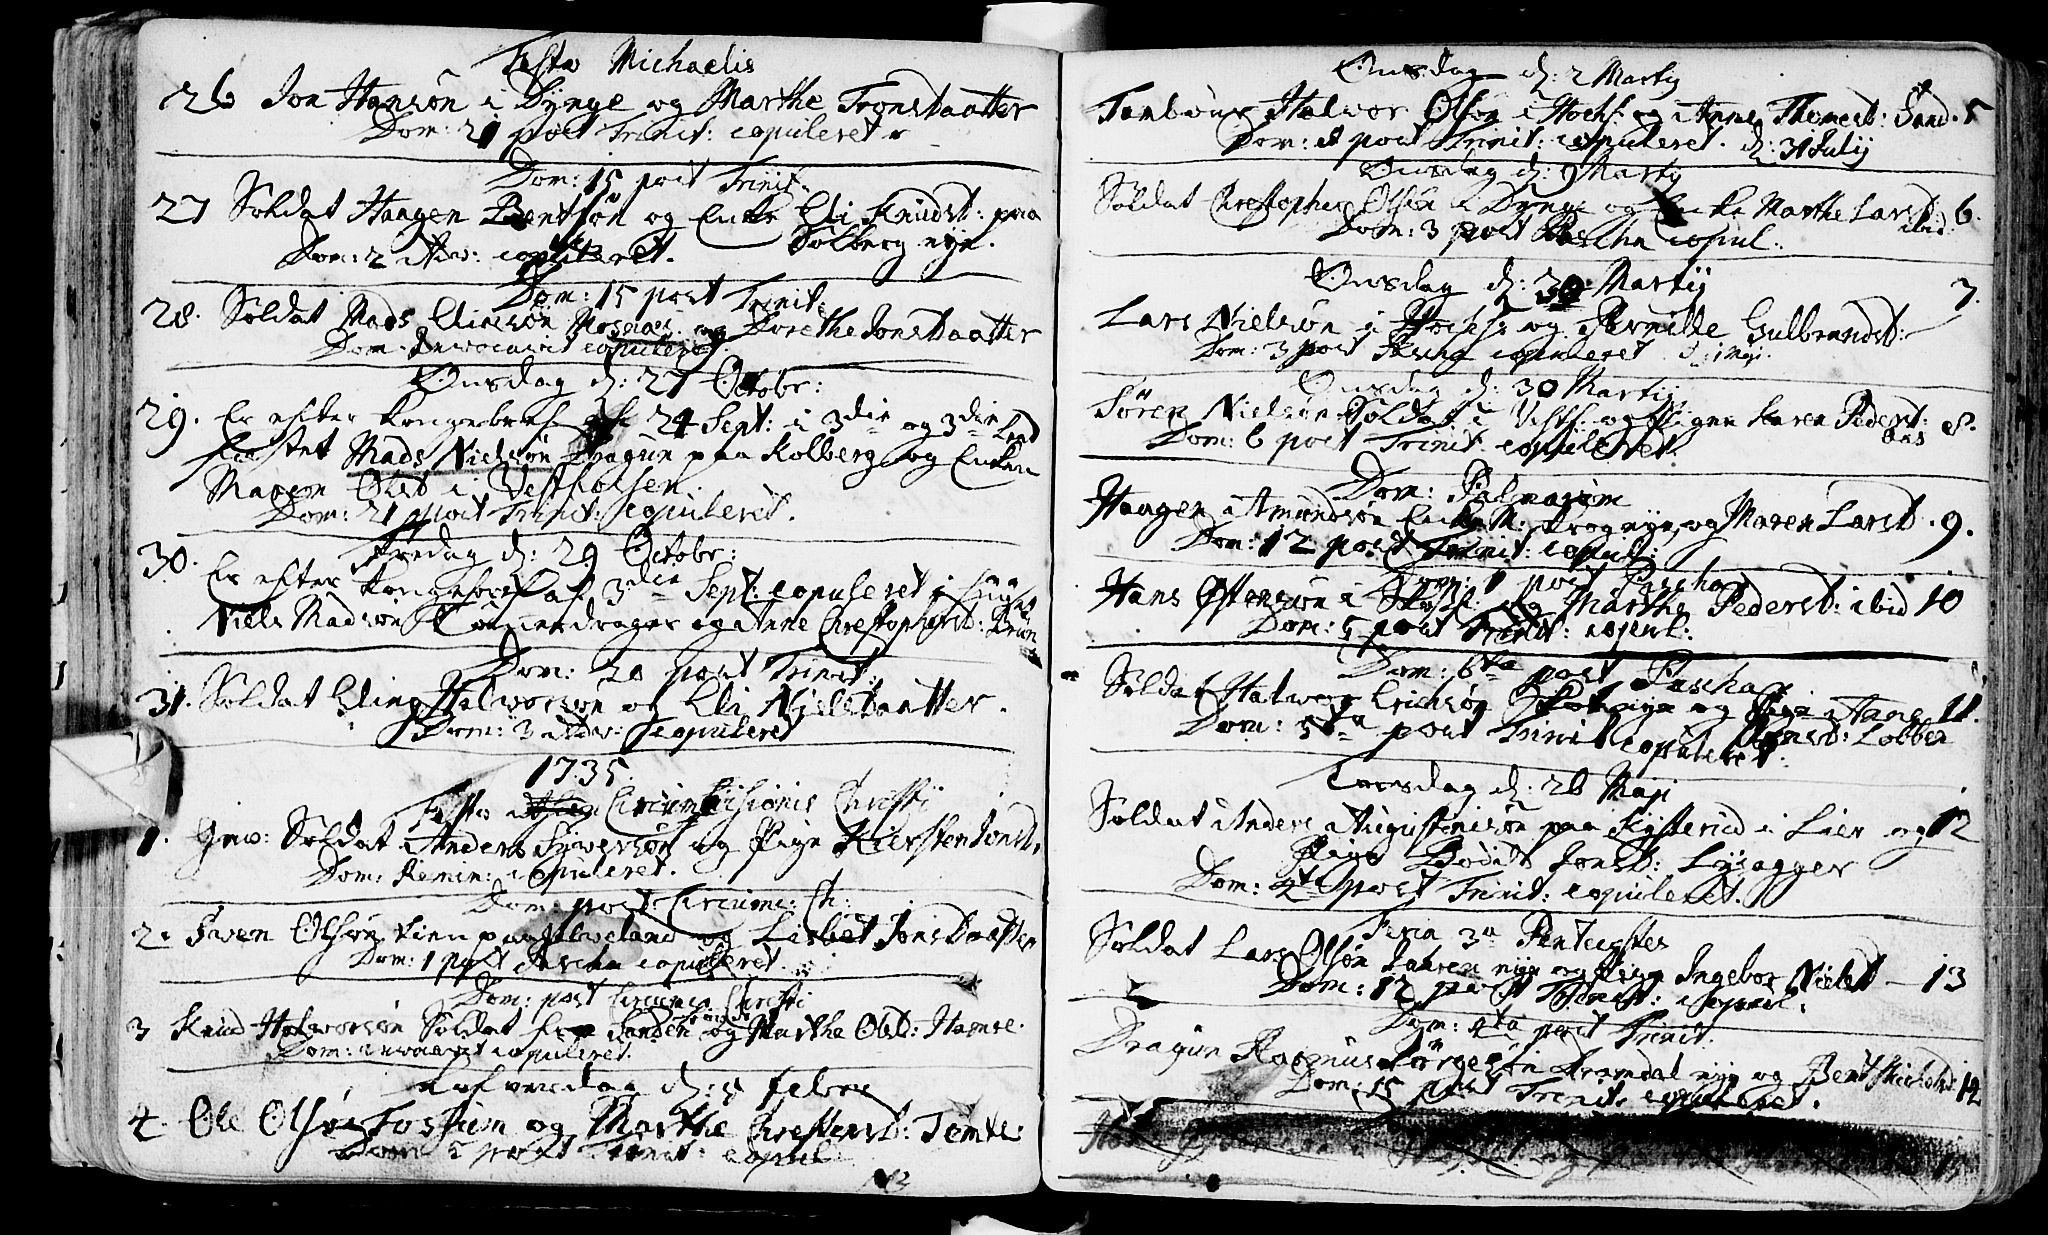 Festo Michaelis
26 Jon Hansøn i Dynge og Marthe Tronsdaatter
Dom: 21 post Trinit: copuleret
Dom: 15 post Trinit.
27 Soldat Haagen Bentsøn og Enke Eli Knudsd: paa
Solberg eye.
Dom: 2 Adv: copuleret.
Dom: 15 post Trinit:
28. Soldat Mads og Dorethe Jonsdaatter
Dom. Invocavit copuleret.
Onsdag d: 27 Octobr:
29. Er efter Kongebref af 24 Sept: i 3die og 3die Led
fæstet Mads Nielsøn Dragun paa Kolberg og Enken
Maren Olsd i Vestfossen.
Dom: 21 post Trinit: copuleret.
Fredag d: 29 Octobr:
30. Er efter Kongebref af 3die Sept: copuleret i
Niels Madsøn og Anne Christophersd:
Dom: 20 post Trinit:
31. Soldat Eling Halvorsøn og Eli Nielsdaatter.
Dom: 3 Adv: copuleret
1735.
Festo Circumcisionis Christi
1. Gev: Soldat Anders Syversøn og Pige Kiersten Jonsd.
Dom: Remin: copuleret.
Dom: post Circumc: Ch:
2. Swen Olsøn og Lisbet Jonsdaatter
Dom: 1 post Pascha copuleret.
Dom: post Circumcis Christi
3 Knud Halvorsøn Soldat fra Sanden og Marthe Olsd: Hamre.
Dom: Invocavit copuleret.
Løfverdag d: 5 Febru
4. Ole Olsøn Fossum og Marthe Christensd: Temte:
Dom 2 post Trinit: copul

Onsdag d: 2 Martij
Tambour Halvor Olsøn i Hochs: og Anne Thomesd: Sand. 5
Dom: post Trinit: copuleret. d: 31 July
Onsdag d: 9 Martij
Soldat Christopher Olsøn i Dynge og Enke Marthe Larsd: 6.
ibid:
Dom: 3 post Pascha copul.
Onsdag d: 30 Martij
7.
Lars Nielsøn i Hochss og Pernille Gulbrandsd:
Dom: 3 post Pascha copuleret d: 1 Maji.
Onsdag d: 30 Martij
Søren Nielsøn Soldat i Vestf: og Pigen Karen Pedersd: 8.
Dom: 6 post Trinit: copuleret.
Dom: Palmarum
Haagen Amundsøn Enkem: Krog eye, og Maren Larsd. 9.
Dom: 12 post Trinit: copul:
Dom: 1 post Pascha
Hans Østensøn i og Marthe Pedersd: ibid 10
Dom: 5 post Trinit: copul:
Dom: 6ta post Pascha
Soldat Halvor Erichsøn eye og Pige Aane 11.
Lobben
Dom: 5ta post Trinit copuleret.
Torsdag d: 26 Maji
Soldat Anders Augustinisøn paa Kysterud i Lier og 12
Pige Bodil Jonsd: Lysagger
Dom: 4te post Trinit: copuleret.
Feria 3a Pentecostes
Soldat Lars Olsøn eye og Pige Ingebor Nielsd — 13
Dom: 12 post Trinit: copul.
Dom: 4ta post Trinit.
Dragun Rasmus Jørgesøn Kromdal eye og Berit 14
Dom: 15 post Trinit. copuleret.